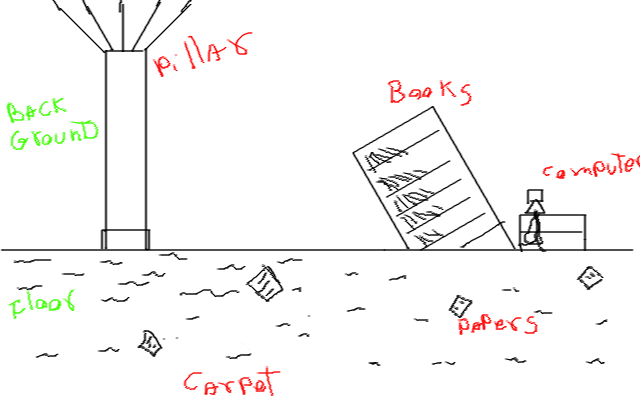 PillAr
BACK
GrounD
Books
computer
Floor
PAPers
CArpet